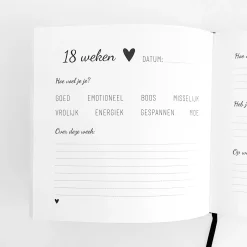 18 weken DATUM:
Hoe voel je je?
GOED EMOTIONEEL BOOS MISSELIJK
VROLIJK ENERGIEK GESPANNEN MOE
Over deze week:
Hoe
Heb j
Op w